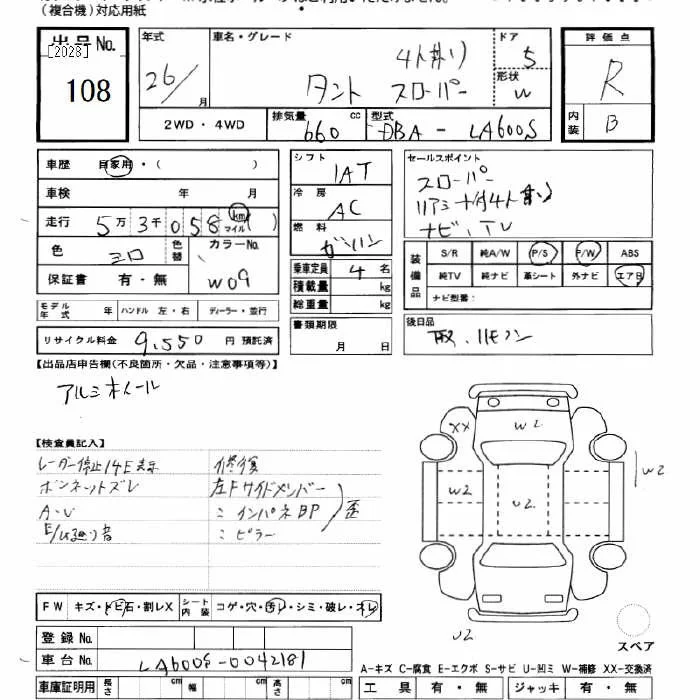 (複合機)対応用紙
出品No.
[2023]
108
年式
26/
月
車名・グレード
4人乗り
タント スローパー
ドア
5
形状
W
評価点
R
内装
B
2WD・4WD
排気量
660
cc
型式
DBA - LA600S
車歴 自家用・( )
車検 年 月
走行 5万3千058 km マイル ( )
色
色替
カラーNo.
W09
保証書 有・無
モデル年式 ハンドル 左・右 ディーラー・並行
リサイクル料金 9,550 円 預託済
シフト
IAT
冷房
AC
燃料
ガソリン
乗車定員 4 名
積載量 kg
総重量 kg
書類期限
月 日
セールスポイント
スローパー
リアシート付4人乗り
ナビ、TV
装備品
S/R 純A/W P/S F/W ABS
純TV 純ナビ 革シート 外ナビ エアB
ナビ型番:
後日品
取、リモコン
【出品店申告欄(不良箇所・欠品・注意事項等)】
アルミホイール
【検査員記入】
レーダー停止14E表示 修復
ボンネットズレ 左Fサイドメンバー
A-U : インパネBP 歪
: ピラー
XX
W2
W2
U2
W2
U2
スペア
FW キズ・トビ石・割レX シート内装 コゲ・穴・汚レ・シミ・破レ・スレ
登録No.
車台No. LA600S-0042181
車庫証明用 長さ cm 幅 cm 高さ cm
A-キズ C-腐食 E-エクボ S-サビ U-凹ミ W-補修 XX-交換済
工具 有・無 ジャッキ 有・無